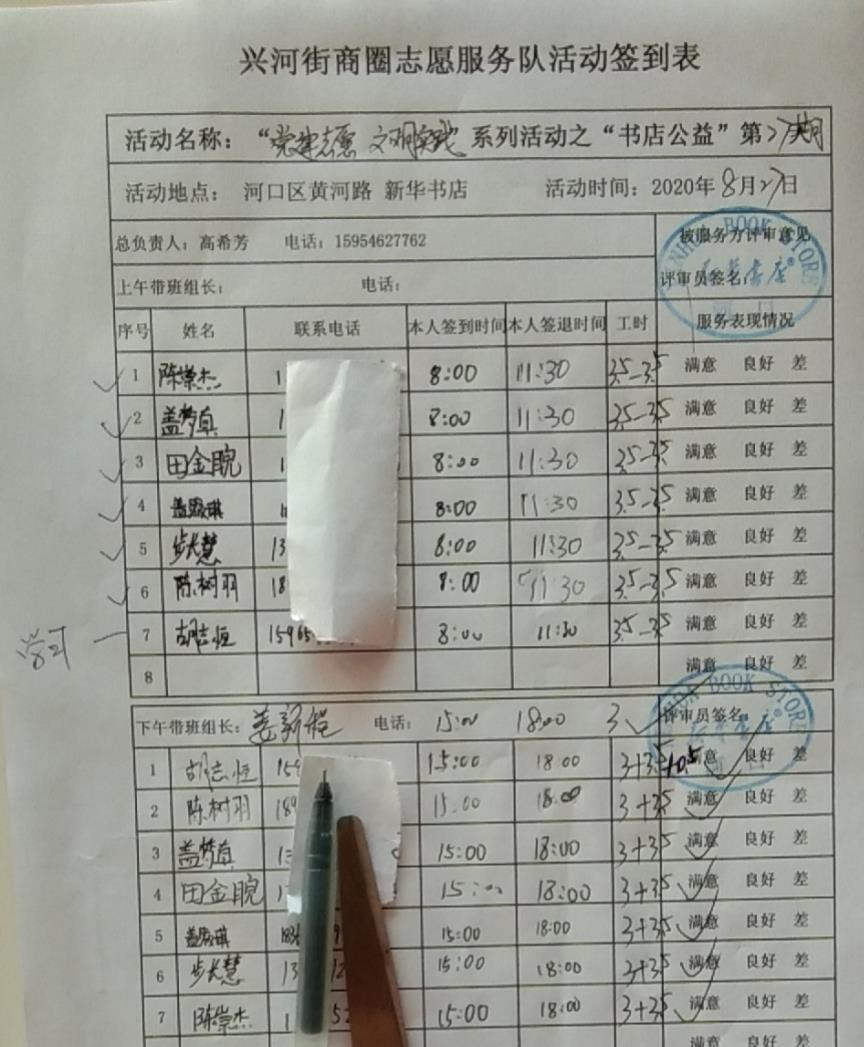 兴河街商圈志愿服务队活动签到表
活动名称：“党建志愿 文明实践”系列活动之“书店公益”第27期
活动地点： 河口区黄河路 新华书店 活动时间：2020年8月27日
总负责人：高希芳 电话：15954627762 被服务方评审意见
上午带班组长： 电话： 评审员签名：
序号 姓名 联系电话 本人签到时间 本人签退时间 工时 服务表现情况
1 陈崇杰 1 8:00 11:30 3.5-3.5 满意 良好 差
2 盖梦真 1 8:00 11:30 3.5-3.5 满意 良好 差
3 田金睆 1 8:00 11:30 3.5-3.5 满意 良好 差
4 8:00 11:30 3.5-3.5 满意 良好 差
5 步长慧 13 8:00 11:30 3.5-3.5 满意 良好 差
6 陈树羽 18 8:00 11:30 3.5-3.5 满意 良好 差
学习 7 胡志恒 1596 8:00 11:30 3.5-3.5 满意 良好 差
8 满意 良好 差
下午带班组长：姜新程 电话： 15:00 18:00 3 评审员签名
BOOK STORE
1 胡志恒 159 15:00 18:00 3+3.5 10.5 满意 良好 差
2 陈树羽 189 15:00 18:00 3+3.5 满意 良好 差
3 盖梦真 1 15:00 18:00 3+3.5 满意 良好 差
4 田金睆 1 15:00 18:00 3+3.5 满意 良好 差
5 15:00 18:00 3+3.5 满意 良好 差
6 步长慧 13 15:00 18:00 3+3.5 满意 良好 差
7 陈崇杰 1 15:00 18:00 3+3.5 满意 良好 差
满意 良好 差